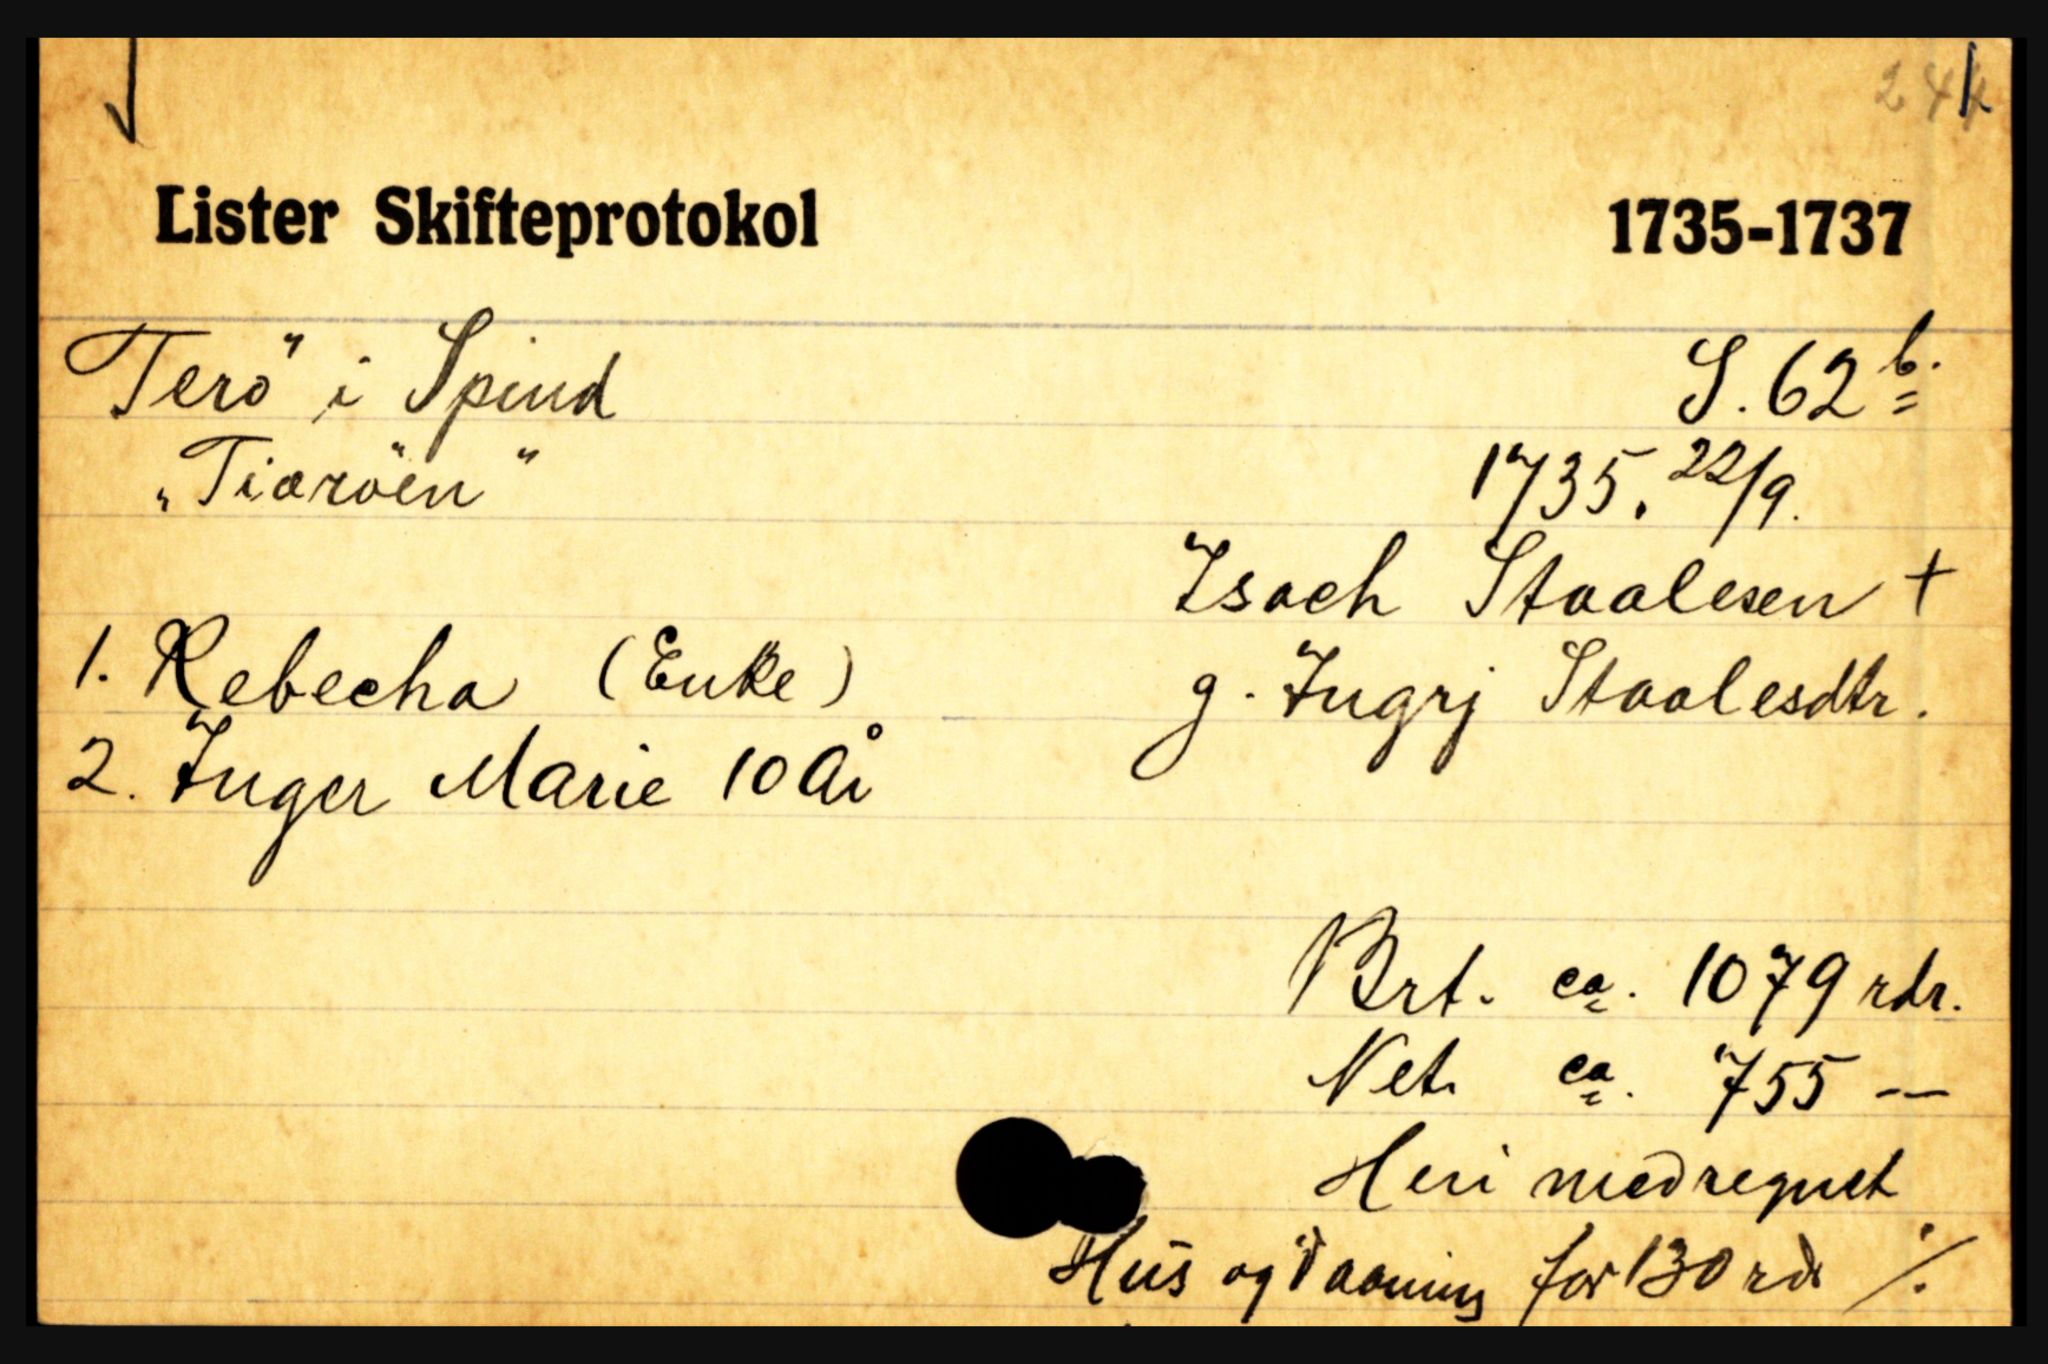 244
Lister Skifteprotokol 1735-1737
Terö i Spind S. 62 b.
"Tiaröen" 1735. 22/9.
Isach Staalesen +
1. Rebecha (Enke) g. Ingrj Staalesdtr.
2. Inger Marie 10 År
Brt. ca. 1079 rdr.
Net. ca. 755 —
Heri medregnet
Hus og Vaaning for 130 rdr ./.